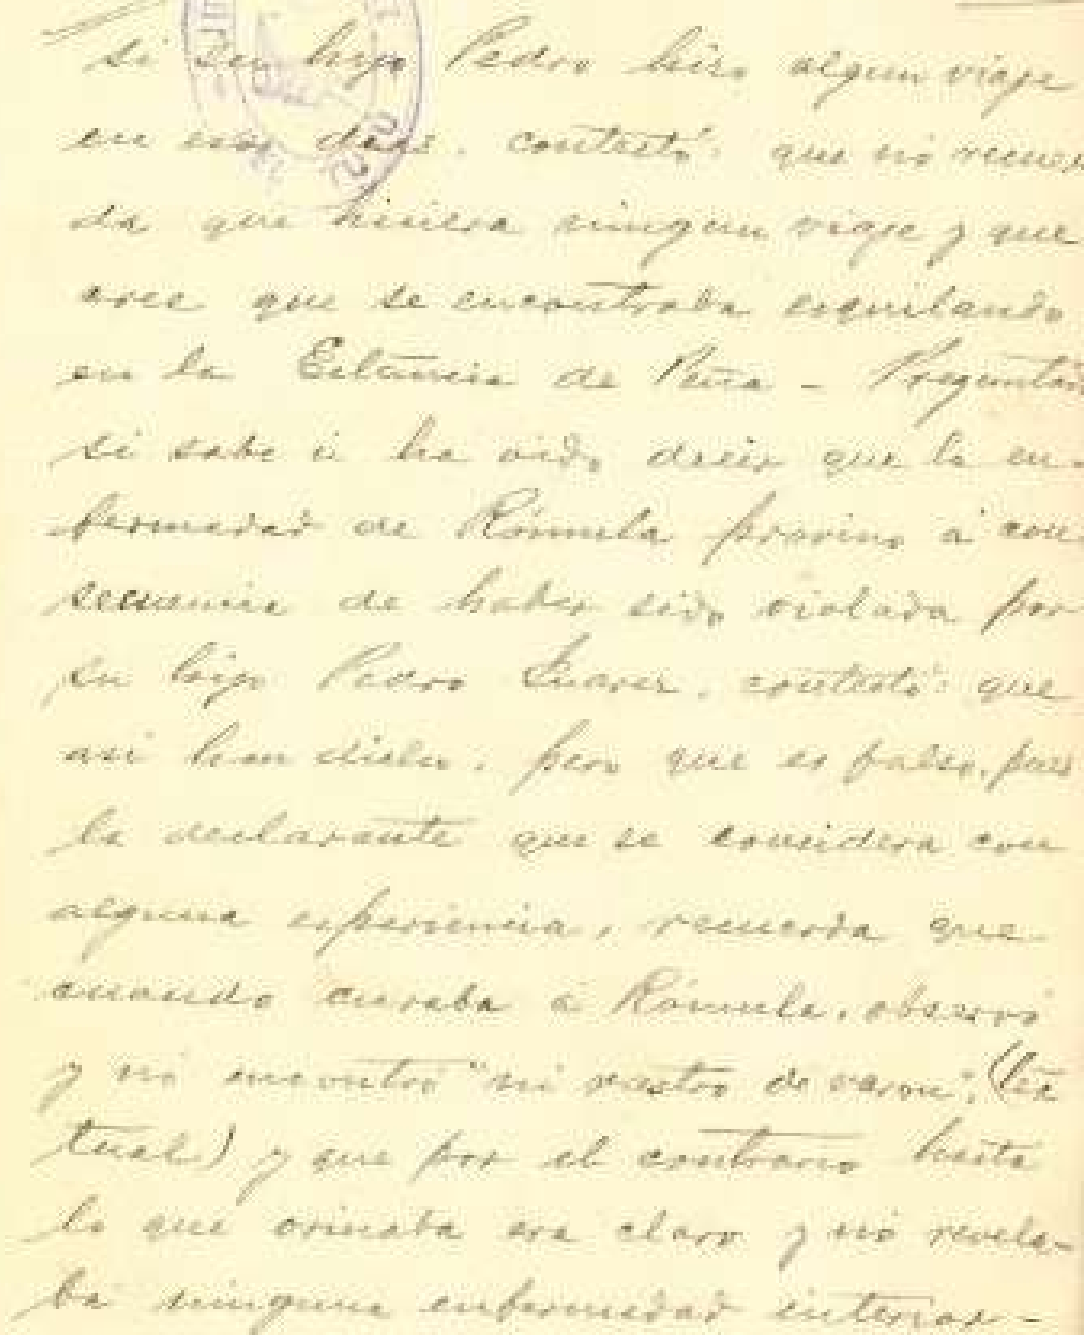 si su hijo Pedro hizo algun viaje
en esos dias. contestó: que nó recuer
da que hiciera ningun viaje y que
cree que se encontraba esquilando
en la Estancia de Peña - Preguntada
si sabe ú ha oido decir que la en-
fermedad de Rómula provino á con
secuencia de haber sido violada por
su hijo Pedro Suarez, contestó: que
asi han dicho, pero que es falso, pues
la declarante que se considera con
alguna esperiencia, recuerda que
cuando curaba á Rómula, observó
y nó encontró "ni rastro de varon", (tex
tual) y que por el contrario hasta
lo que orinaba era claro y nó revela-
ba ninguna enfermedad interior -